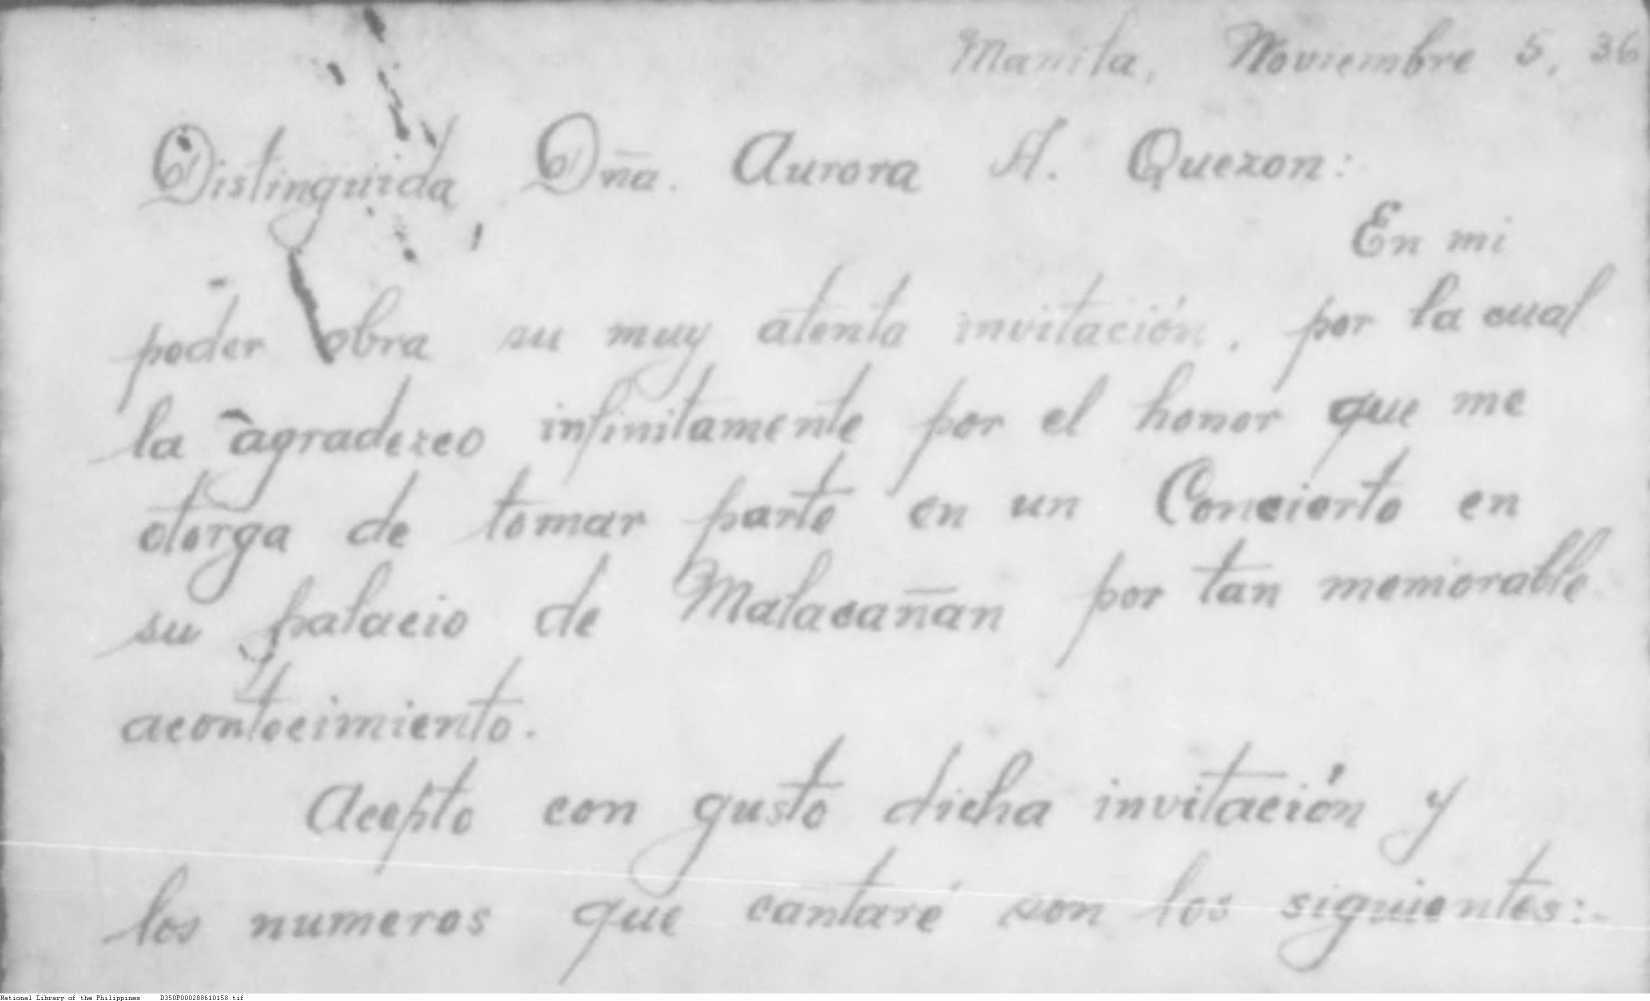 Manila, Noviembre 5, 36
Distinguida Dña. Aurora A. Quezon:
En mi
poder obra su muy atenta invitación, por la cual
la agradezco infinitamente por el honor que me
otorga de tomar parte en un Concierto en
su palacio de Malacañan por tan memorable
acontecimiento.
Acepto con gusto dicha invitación y
los numeros que cantaré son los siguientes:-
National Library of the Philippines D350P000288610158.tif